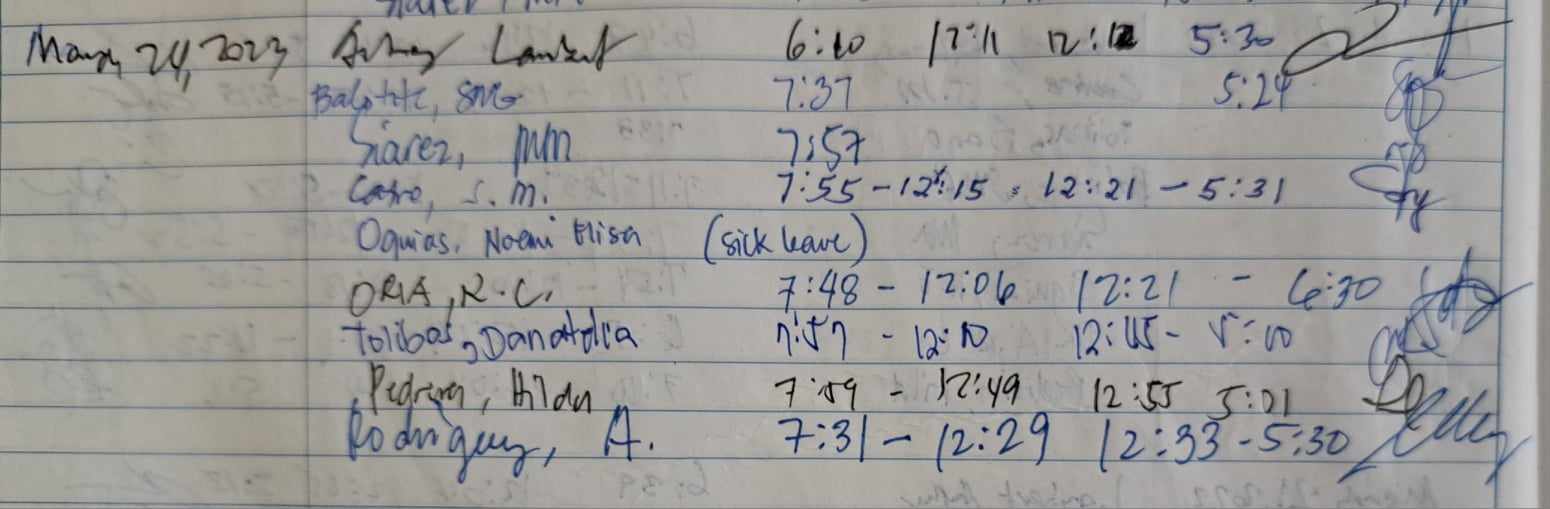 24, 2023 Lambert 6:10 12:11 12:12 5:30
7:37 5:24
Siarez, MM 7:57
Castro, S.M. 7:55 - 12:15 12:21 - 5:31
Oquias, Noemi Elisa (sick leave)
ORIA, R.C. 7:48 - 12:06 12:21 - 6:30
Tolibas, Danatolia 7:57 - 12:10 12:45 - 5:00
Hilda 7:59 - 12:49 12:55 5:01
Rodriguez, A. 7:31 - 12:29 12:33 - 5:30